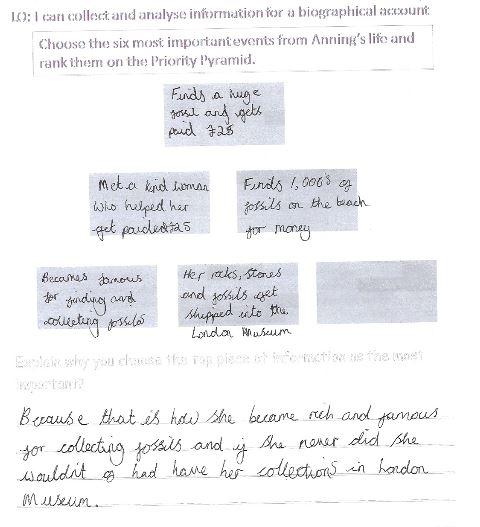 LO: I can collect and analyse information for a biographical account
Choose the six most important events from Anning's life and
rank them on the Priority Pyramid.
Finds a huge
fossil and gets
paid £25
Met a kind woman
who helped her
get paid £25
Finds 1,000s of
fossils on the beach
for money
Becames famous
for finding and
collecting fossils
Her rocks, stones
and fossils get
shipped into the
London Museum
Explain why you choose the top piece of information as the most
important?
Because that is how she became rich and famous
for collecting fossils and if she never did she
wouldn't of had have her collections in London
Museum.